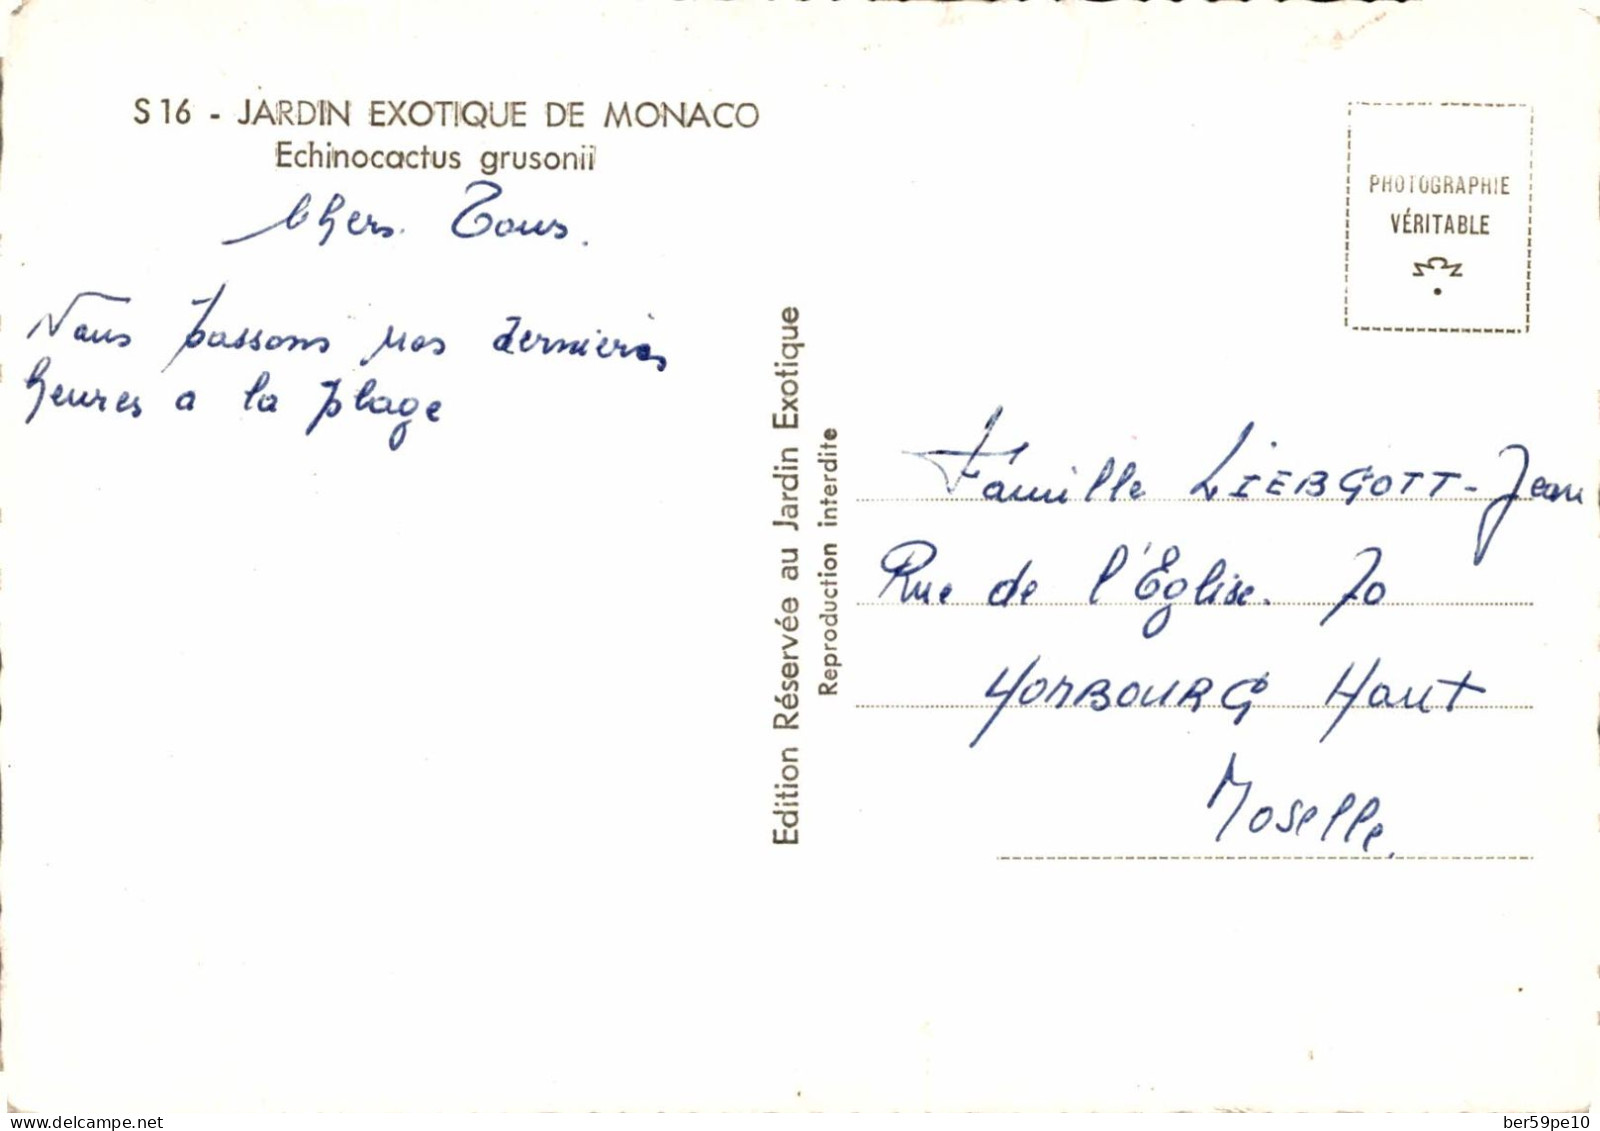 S 16 - JARDIN EXOTIQUE DE MONACO
Echinocactus grusonii
Chers Tous.
Nous passons nos dernieres
heures a la plage
Edition Réservée au Jardin Exotique
Reproduction interdite
PHOTOGRAPHIE
VÉRITABLE
Famille LIEBGOTT-Jean
Rue de l'Eglise. 70
HOMBOURG Haut
Moselle.
delcampe.net
ber59pe10